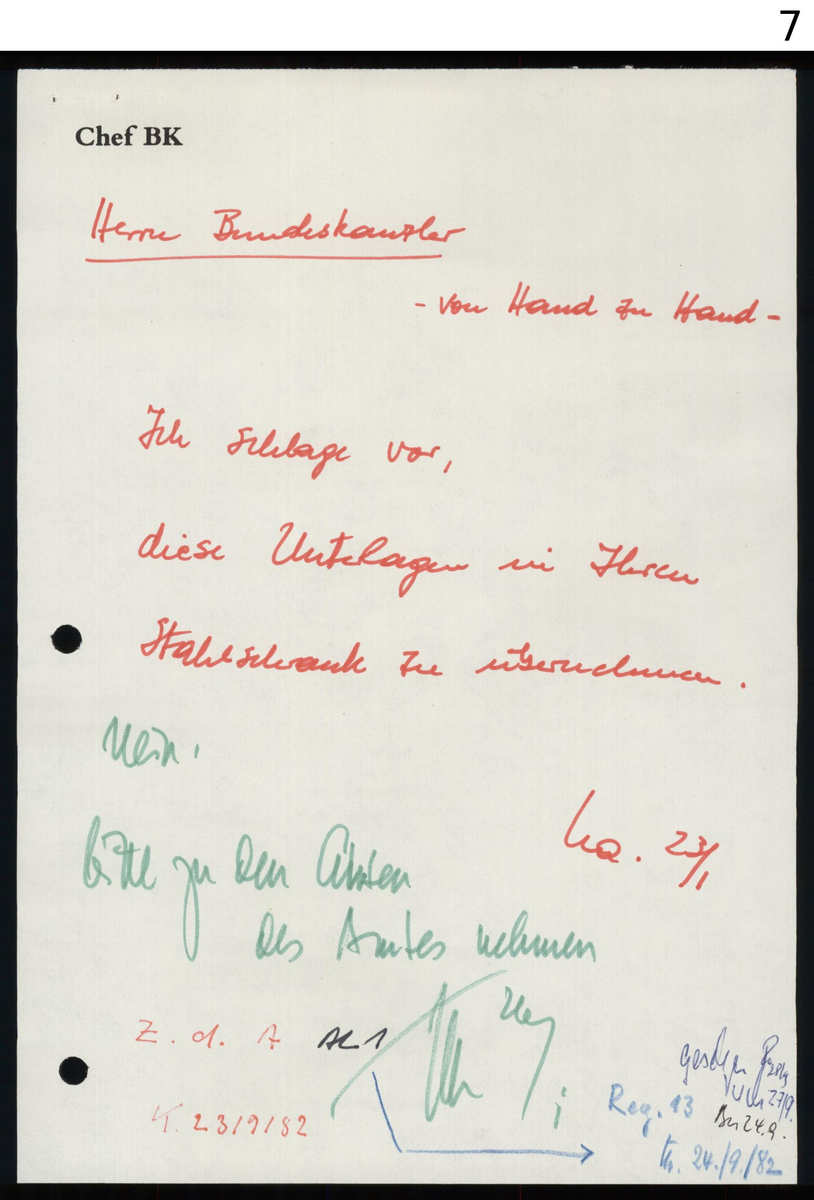 7
Chef BK
Herrn Bundeskanzler
- von Hand zu Hand -
Ich schlage vor,
diese Unterlagen in Ihren
Stahlschrank zu übernehmen.
Nein.
bitte zu den Akten
des Amtes nehmen
La. 23/1
Z. d. A AL 1
K. 23/9/82
Reg. 13
24.9.
24./9./82